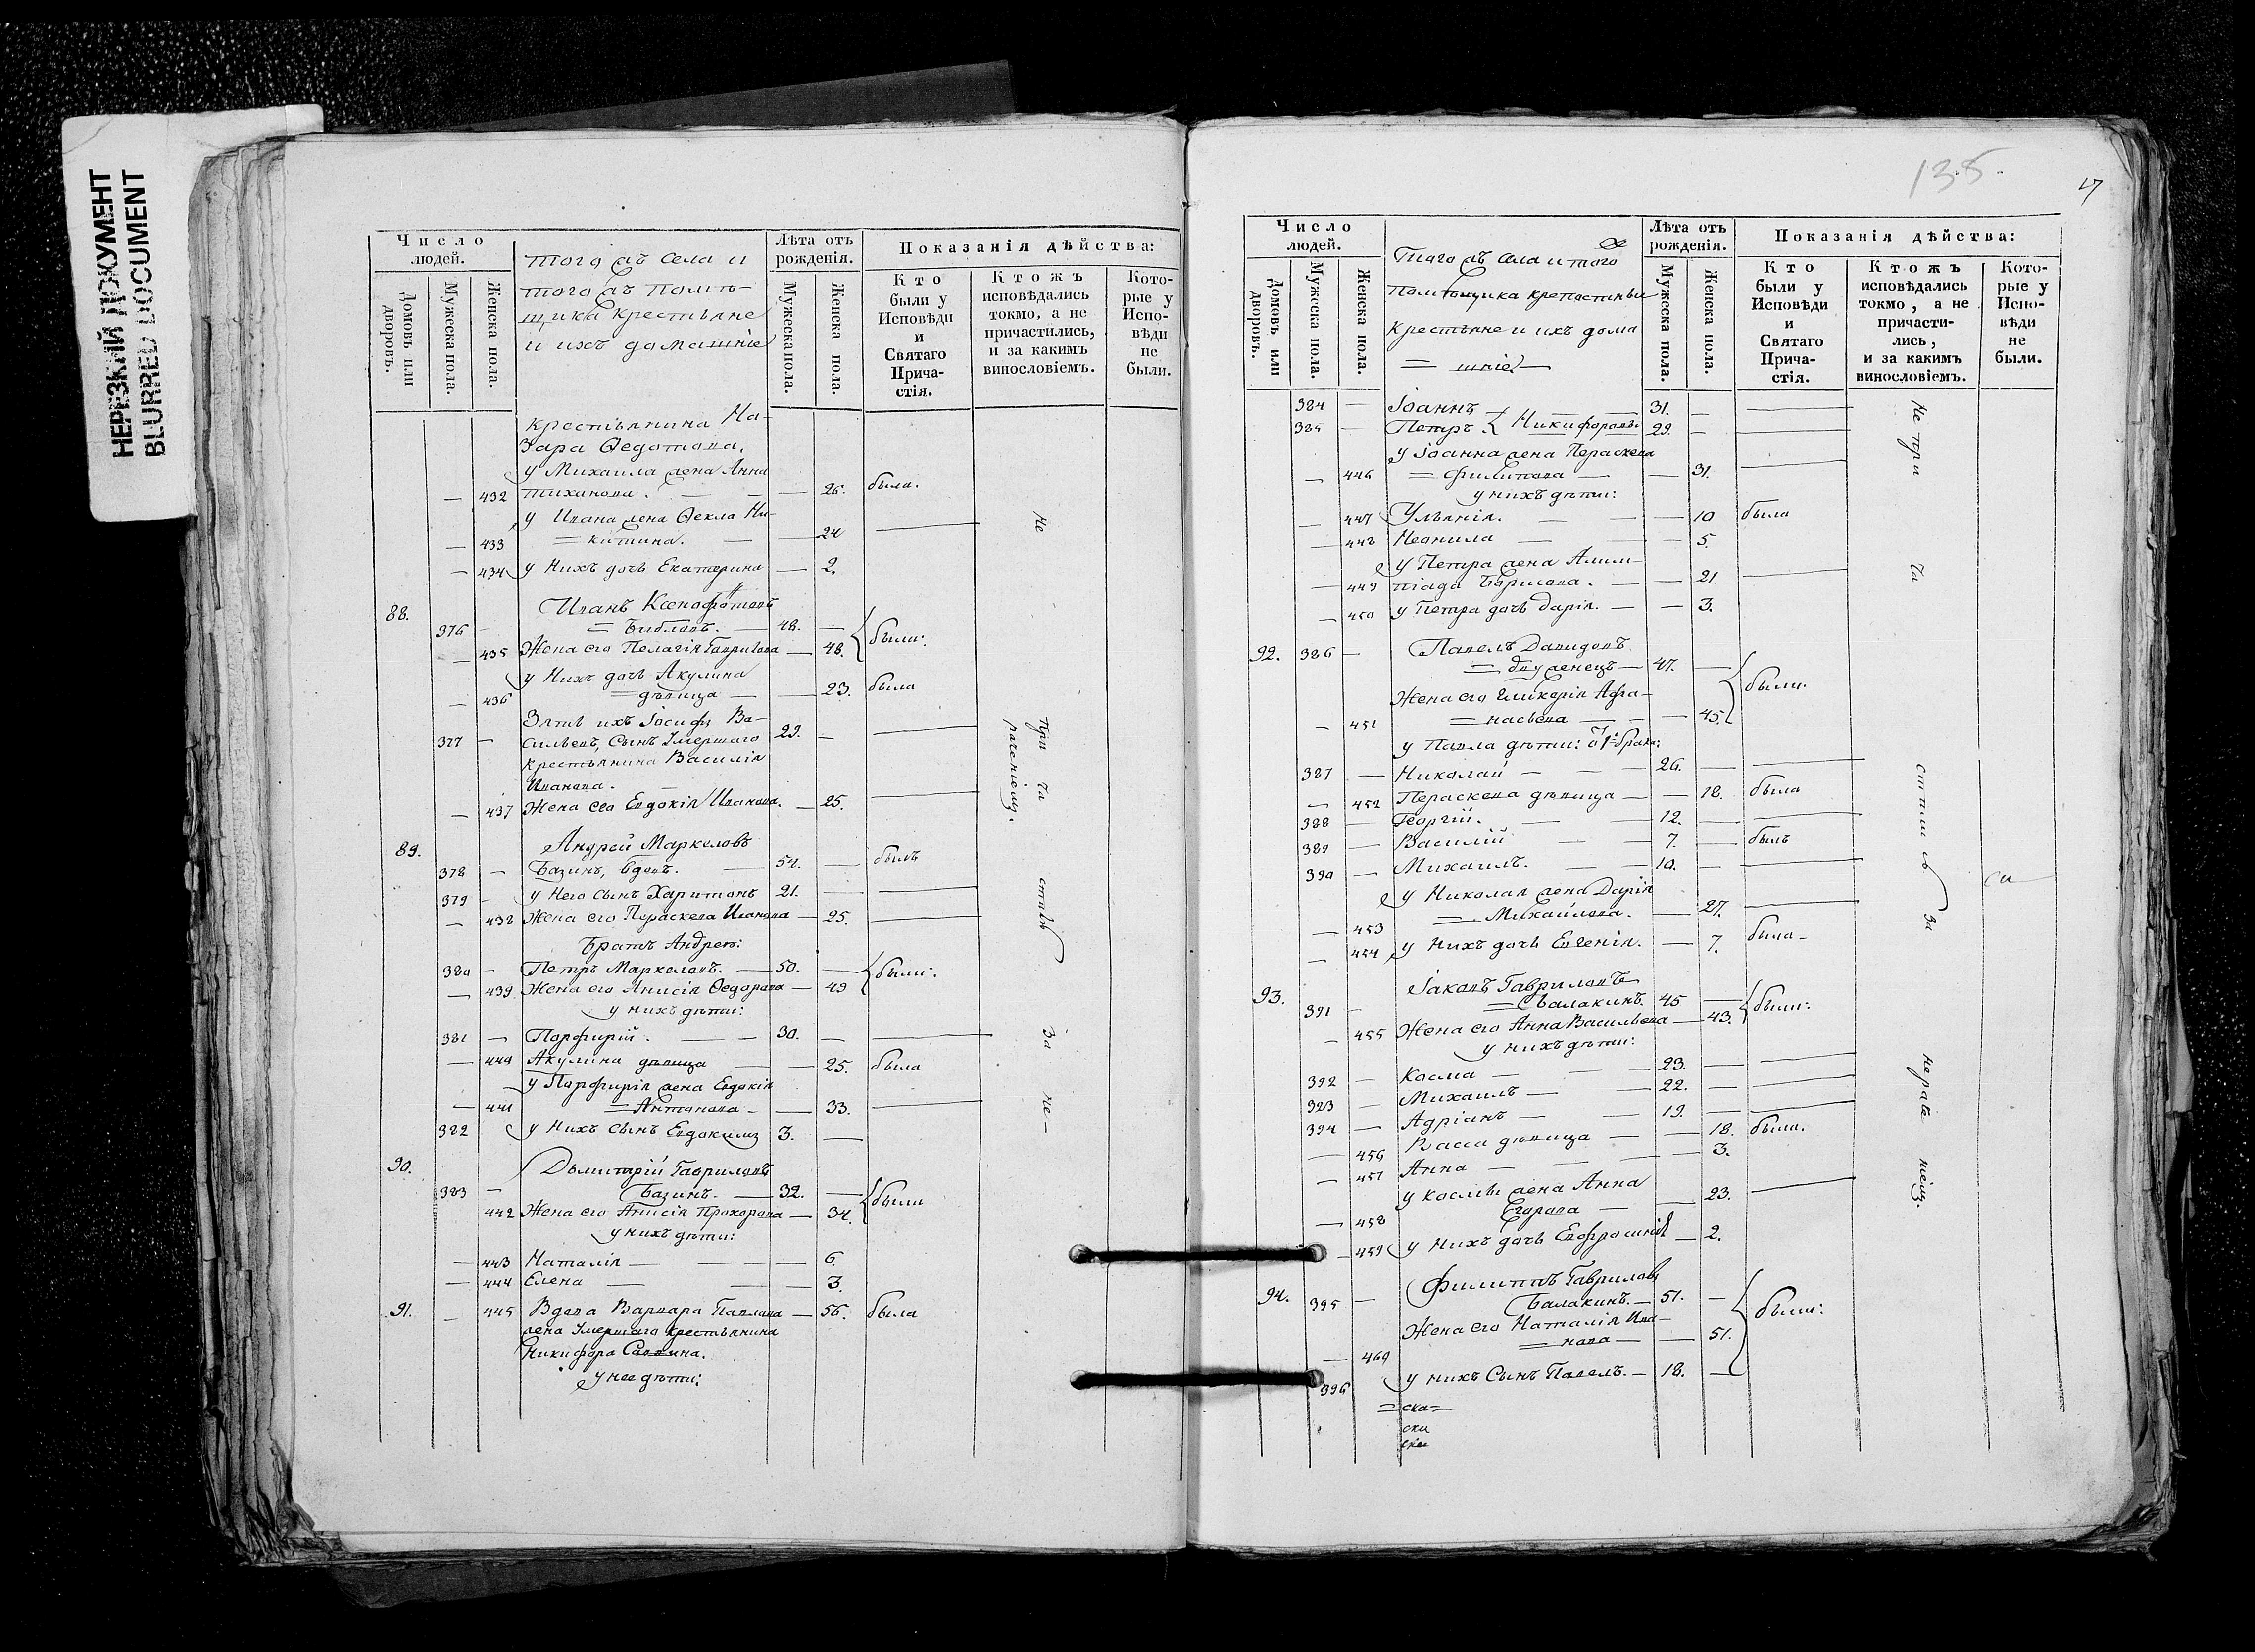 НЕРЕЗКИЙ ДОКУМЕНТ
BLURRED DOCUMENT
Число людей.
Домовъ или дворовъ.
Мужеска пола.
Женска пола.
того жъ села и
того жъ помѣ-
щика крестьяне
и ихъ домашніе
Лѣта отъ рожденія.
Мужеска пола.
Женска пола.
Показанія дѣйства:
Кто были у Исповѣди и Святаго Прича-стія.
Ктожъ исповѣдались токмо, а не причастились, и за какимъ винословіемъ.
Кото-рые у Испо-вѣди не были.
крестьянина На-
зара Ѳедотова.
у Михаила жена Анна
— 432 Тиханова. — 26. была.
у Ивана жена Ѳекла Ни-
— 433 = китина. — 24
— 434 у нихъ дочь Екатерина — 2.
88. Иванъ Ксенофонтовъ
376 — 48. —
— 435 Жена его Пелагія Гаврилова — 48. были.
у нихъ дочь Акулина
— 436 = дѣвица — 23. была
Зять ихъ Іосифъ Ва-
377 — сильевъ, сынъ умершаго 29. —
крестьянина Василія
Иванова.
— 437 Жена его Евдокія Иванова. — 25.
89. Андрей Маркеловъ
378 — Базинъ, вдовъ. 54. — былъ
379 — у него сынъ Харитонъ 21. —
— 438 Жена его Параскева Иванова — 25.
Братъ Андрея:
380 — Петръ Маркеловъ. — 50. — были.
— 439 Жена его Анисія Ѳедорова — 49
у нихъ дѣти:
381 — Порфирій. — 30. —
— 440 Акулина дѣвица — 25. была
у Порфирія жена Евдокія
— 441 = Антонова — 33.
382 у нихъ сынъ Евдокимъ 3. —
90. Дымитрій Гавриловъ
383 — Базинъ. — 32. — были
442 Жена его Анисія Прохорова — 34.
у нихъ дѣти:
— 443 Наталія — 6.
— 444 Елена — 3.
91. — 445 Вдова Варвара Павлова — 56. была
жена умершаго крестьянина
Никифора
у нее дѣти:
Не при ча стивъ За не-
раченіемъ.
135
17
Число людей.
Домовъ или дворовъ.
Мужеска пола.
Женска пола.
Того жъ села и того
помѣщика крепостные
крестьяне и ихъ дома
= шніе —
Лѣта отъ рожденія.
Мужеска пола.
Женска пола.
Показанія дѣйства:
Кто были у Исповѣди и Святаго Прича-стія.
Ктожъ исповѣдались токмо, а не причасти-лись, и за какимъ винословіемъ.
Кото-рые у Испо-вѣди не были.
384 — Іоаннъ 31. —
385 — Петръ Никифоровы 29. —
у Іоанна жена Параскева
— 446 = Филипова — 31.
у нихъ дѣти:
— 447 Ульянія. — 10 была
— 448 Неонила — 5.
у Петра жена Алим-
— 449 піада Борисова. — 21.
— 450 у Петра дочь Дарія. — 3.
92. 386 — Павелъ Давидовъ
= двуженецъ — 47. — были.
Жена его Гликерія Афа-
— 451 = насьева — 45.
у Павла дѣти: о 1го брака:
387 — Николай — 26. —
— 452 Параскева дѣвица — 18. была
388 — Георгій. — 12. —
389 — Василій — 7. — былъ
390 — Михаилъ. — 10. —
у Николая жена Дарія
— 453 = Михайлова. — 27.
— 454 у нихъ дочь Евгенія. — 7. была —
93. Іаковъ Гавриловъ
391 — = Балакинъ. 45 — были:
— 455 Жена его Анна Васильева — 43.
у нихъ дѣти:
392 — Косма — 23. —
393 — Михаилъ — 22. —
394 — Адріанъ — 19. —
— 456 Васса дѣвица — 18. была.
— 457 Анна — 3.
у Космы жена Анна
— 458 Егорова — 23.
— 459 у нихъ дочь Евфросинія — 2.
94. Филиппъ Гавриловъ
395 — Балакинъ. — 51. — были:
Жена его Наталія Ива-
— 460 = нова — 51.
396 у нихъ сынъ Павелъ. — 18. —
Не при ча стили съ за нераче ніемъ.
= ска =
ски